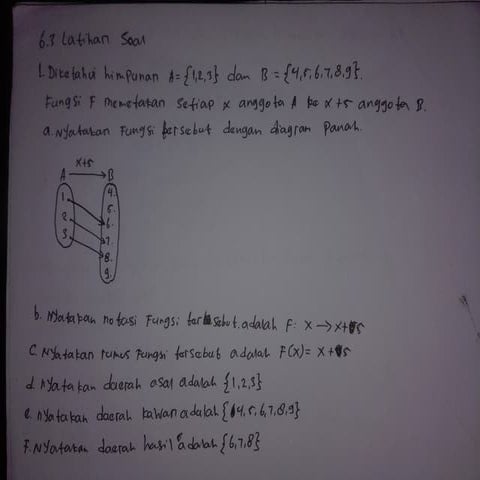 6.3 Latihan Soal
1. Diketahui himpunan A = {1,2,3} dan B = {4,5,6,7,8,9}.
Fungsi F memetakan setiap x anggota A ke x+5 anggota B.
a. Nyatakan Fungsi tersebut dengan diagram Panah.
x+5
A → B
1.
2.
3.
4.
5.
6.
7.
8.
9.
b. Nyatakan notasi Fungsi tersebut adalah F: X → X+5
C. Nyatakan rumus Fungsi tersebut adalah F(x) = X+5
d. nyatakan daerah asal adalah {1,2,3}
e. nyatakan daerah kawan adalah {4,5,6,7,8,9}
F. Nyatakan daerah hasil adalah {6,7,8}